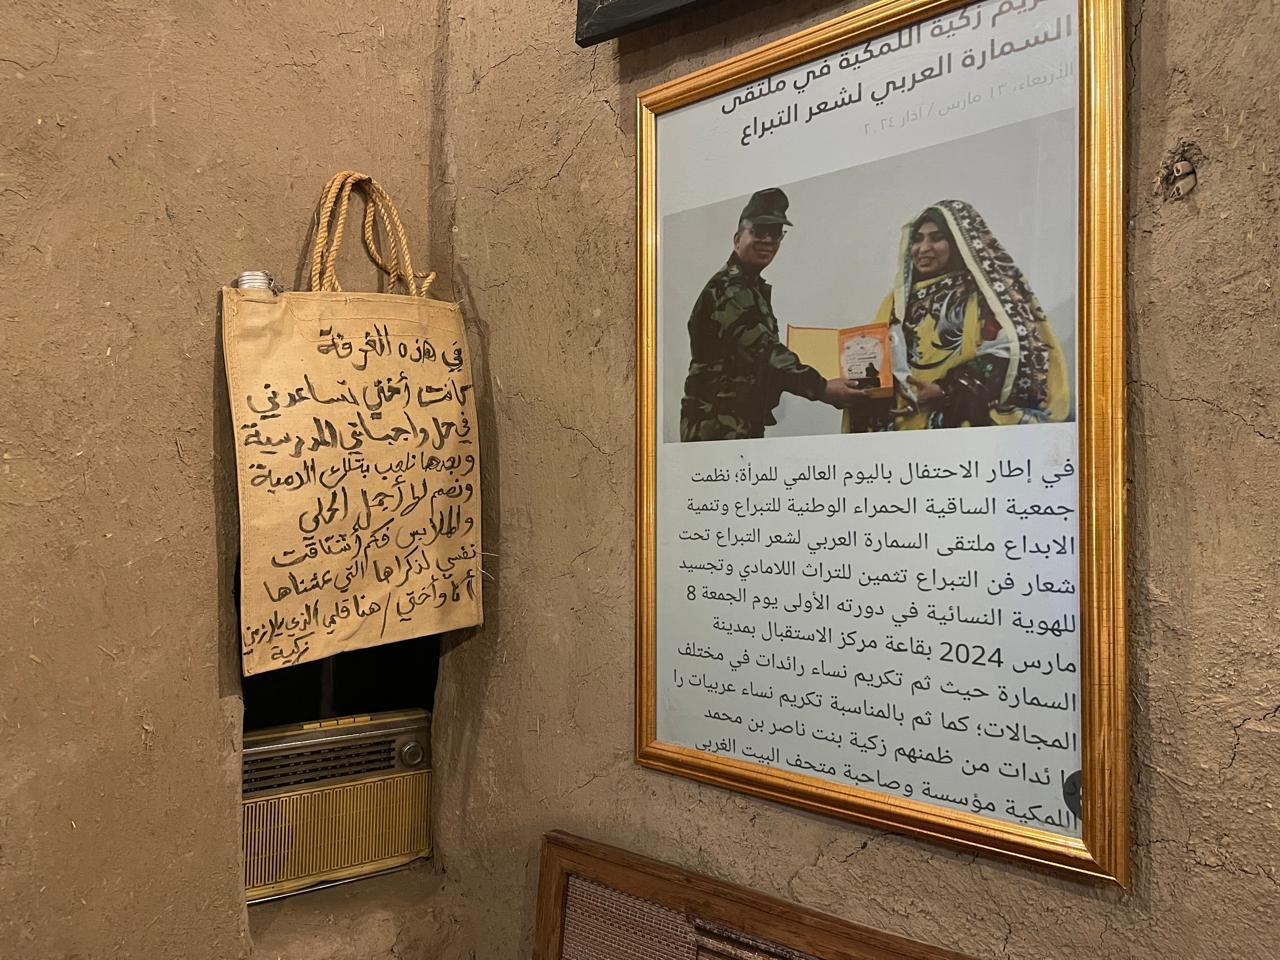 تكريم زكية اللمكية في ملتقى
السمارة العربي لشعر التبراع
الأربعاء، ١٣ مارس / آذار ٢٠٢٤
في إطار الاحتفال باليوم العالمي للمرأة؛ نظمت
جمعية الساقية الحمراء الوطنية للتبراع وتنمية
الابداع ملتقى السمارة العربي لشعر التبراع تحت
شعار فن التبراع تثمين للتراث اللامادي وتجسيد
للهوية النسائية في دورته الأولى يوم الجمعة 8
مارس 2024 بقاعة مركز الاستقبال بمدينة
السمارة حيث ثم تكريم نساء رائدات في مختلف
المجالات؛ كما ثم بالمناسبة تكريم نساء عربيات را
ئدات من ظمنهم زكية بنت ناصر بن محمد
اللمكية مؤسسة وصاحبة متحف البيت الغربي
في هذه الغرفة
كانت أختي تساعدني
في حل واجباتي المدرسية
وبعدها نلعب بتلك الدمية
ونصمم لها أجمل الحلي
والملابس فكم أشتاقت
نفسي لذكراها التي عشناها
أنا وأختي / هنا قلمي الذي يلازمني
زكية